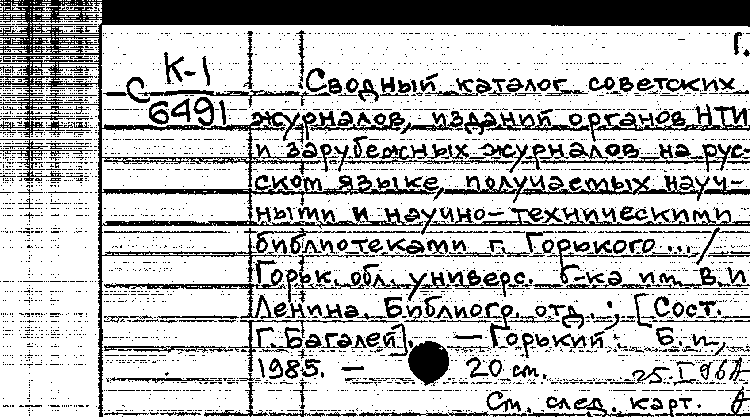 Г.
С К-1
6491
Сводный каталог советских
журналов, изданий органов НТИ
и зарубежных журналов на рус-
ском языке, получаемых науч-
ными и научно-техническими
библиотеками г. Горького ... /
Горьк. обл. универс. б-ка им. В. И
Ленина. Библиогр. отд. ; [Сост.
Г. Багалей]. — Горький: Б. и.,
1985. — 20 см.
См. след. карт.